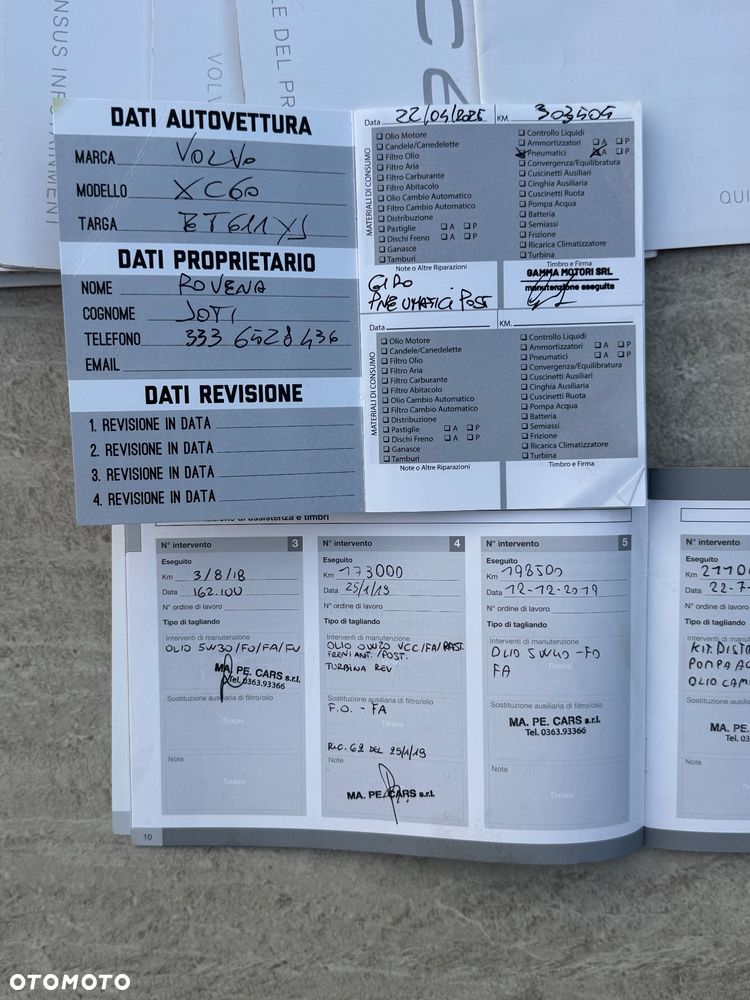 NSUS INFOTAINMENT
VOLV
LE DEL PR
QUI
DATI AUTOVETTURA
MARCA VOLVO
MODELLO XC60
TARGA
DATI PROPRIETARIO
NOME ROVENA
COGNOME JOTI
TELEFONO 333 6528436
EMAIL
DATI REVISIONE
1. REVISIONE IN DATA
2. REVISIONE IN DATA
3. REVISIONE IN DATA
4. REVISIONE IN DATA
Data 22/04/2025 KM. 303504
MATERIALI DI CONSUMO
Olio Motore
Candele/Canedelette
Filtro Olio
Filtro Aria
Filtro Carburante
Filtro Abitacolo
Olio Cambio Automatico
Filtro Cambio Automatico
Distribuzione
Pastiglie A P
Dischi Freno A P
Ganasce
Tamburi
Controllo Liquidi
Ammortizzatori A P
Pneumatici A P
Convergenza/Equilibratura
Cuscinetti Ausiliari
Cinghia Ausiliaria
Cuscinetti Ruota
Pompa Acqua
Batteria
Semiassi
Frizione
Ricarica Climatizzatore
Turbina
Note o Altre Riparazioni
GIRO
PNEUMATICI POST
Timbro e Firma
GAMMA MOTORI SRL
manutenzione eseguita
Data KM.
MATERIALI DI CONSUMO
Olio Motore
Candele/Canedelette
Filtro Olio
Filtro Aria
Filtro Carburante
Filtro Abitacolo
Olio Cambio Automatico
Filtro Cambio Automatico
Distribuzione
Pastiglie A P
Dischi Freno A P
Ganasce
Tamburi
Controllo Liquidi
Ammortizzatori A P
Pneumatici A P
Convergenza/Equilibratura
Cuscinetti Ausiliari
Cinghia Ausiliaria
Cuscinetti Ruota
Pompa Acqua
Batteria
Semiassi
Frizione
Ricarica Climatizzatore
Turbina
Note o Altre Riparazioni
Timbro e Firma
di assistenza e timbri
N° intervento 3
Eseguito
Km 3/8/18
Data 162.100
N° ordine di lavoro
Tipo di tagliando
Interventi di manutenzione
OLIO 5W30/FO/FA/FU
MA. PE. CARS s.r.l.
Tel. 0363.93366
Sostituzione ausiliaria di filtro/olio
Timbro
Note
Timbro
N° intervento 4
Eseguito
Km 173000
Data 25/1/19
N° ordine di lavoro
Tipo di tagliando
Interventi di manutenzione
OLIO 0W20 VCC/FA/PAST.
FRENI ANT./POST.
TURBINA REV
Sostituzione ausiliaria filtro/olio
F.O. - FA
Timbro
RIC. 62 DEL 25/1/19
Note
MA. PE. CARS s.r.l.
N° intervento 5
Eseguito
Km 198500
Data 12-12-2019
N° ordine di lavoro
Tipo di tagliando
Interventi di manutenzione
OLIO 5W40 - FO
FA
Sostituzione ausiliaria di filtro/olio
MA. PE. CARS s.r.l.
Tel. 0363.93366
Note
Timbro
N° intervento
Eseguito
Km
Data 22-7-
N° ordine di lavoro
Tipo di tagliando
Interventi di manutenzione
KIT. DISTR
POMPA AC
OLIO CAM
Sostituzione ausiliaria
MA. PE.
Tel. 03
Note
10
OTOMOTO